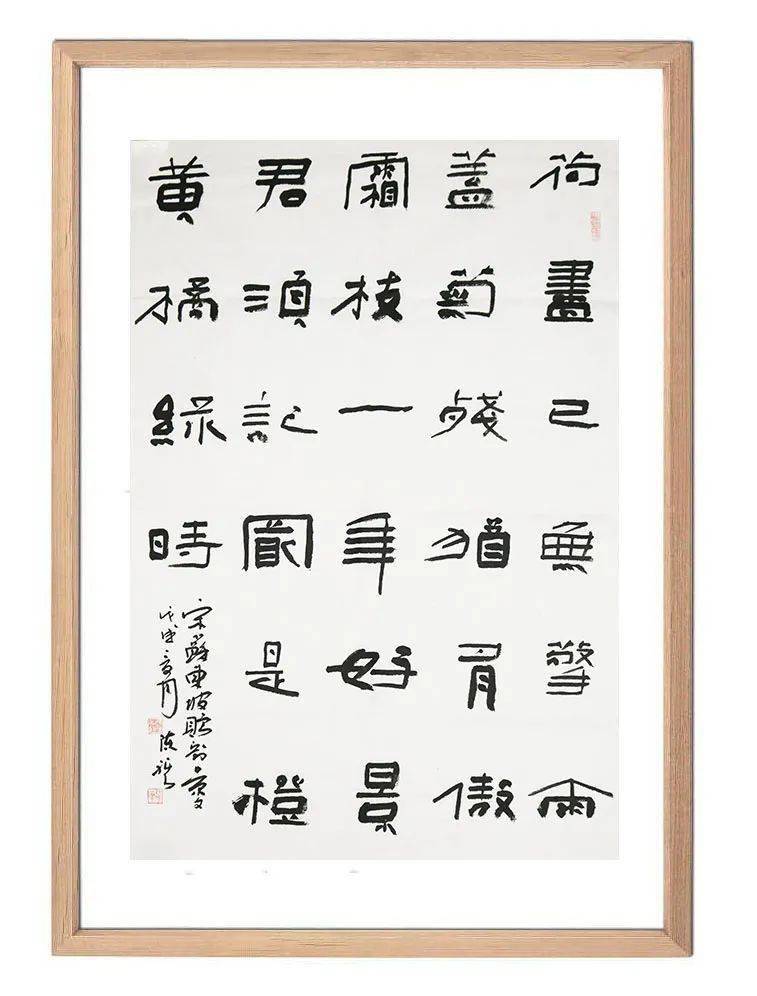 荷盡已無擎雨
蓋菊殘猶有傲
霜枝一年好景
君須記最是橙
黃橘綠時
宋蘇東坡贈劉景文